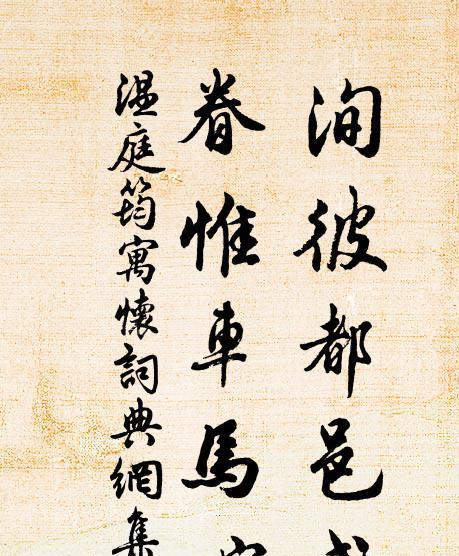 洵彼都邑
眷惟車馬
温庭筠寓懷詞典網集